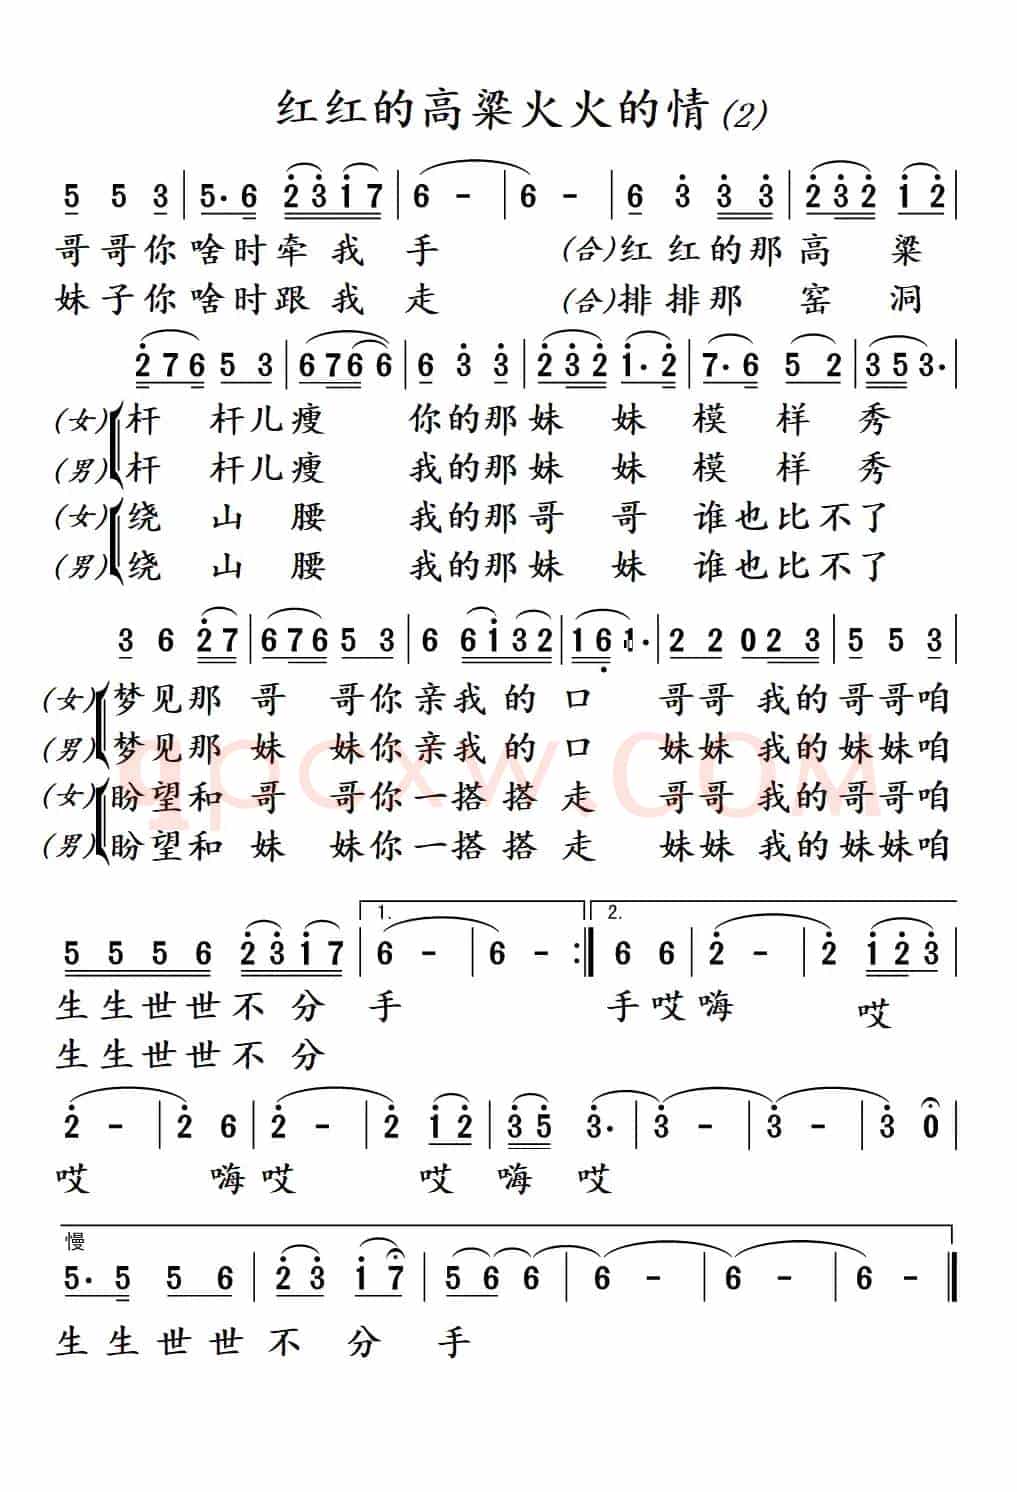 红红的高粱火火的情(2)
5 5 3 | 5· 6 2 3 1 7 | 6 - | 6 - | 6 3 3 3 | 2 3 2 1 2 |
哥哥你啥时牵我手 (合)红红的那高粱
妹子你啥时跟我走 (合)排排那窑洞
2 7 6 5 3 | 6 7 6 6 | 6 3 3 | 2 3 2 1· 2 | 7· 6 5 2 | 3 5 3· |
(女)杆杆儿瘦 你的那妹妹模样秀
(男)杆杆儿瘦 我的那妹妹模样秀
(女)绕山腰 我的那哥哥谁也比不了
(男)绕山腰 我的那妹妹谁也比不了
3 6 2 7 | 6 7 6 5 3 | 6 6 1 3 2 | 1 6 1· | 2 2 0 2 3 | 5 5 3 |
(女)梦见那哥哥你亲我的口 哥哥我的哥哥咱
(男)梦见那妹妹你亲我的口 妹妹我的妹妹咱
qpcxw.COM
(女)盼望和哥哥你一搭搭走 哥哥我的哥哥咱
(男)盼望和妹妹你一搭搭走 妹妹我的妹妹咱
1. 2.
5 5 5 6 2 3 1 7 | 6 - | 6 - :| 6 6 | 2 - | 2 1 2 3 |
生生世世不分手 手哎嗨 哎
生生世世不分
2 - | 2 6 | 2 - | 2 1 2 | 3 5 3· | 3 - | 3 - | 3 0 |
哎 嗨哎 哎嗨哎
慢
5· 5 5 6 | 2 3 1 7 | 5 6 6 | 6 - | 6 - | 6 - |
生生世世不分手